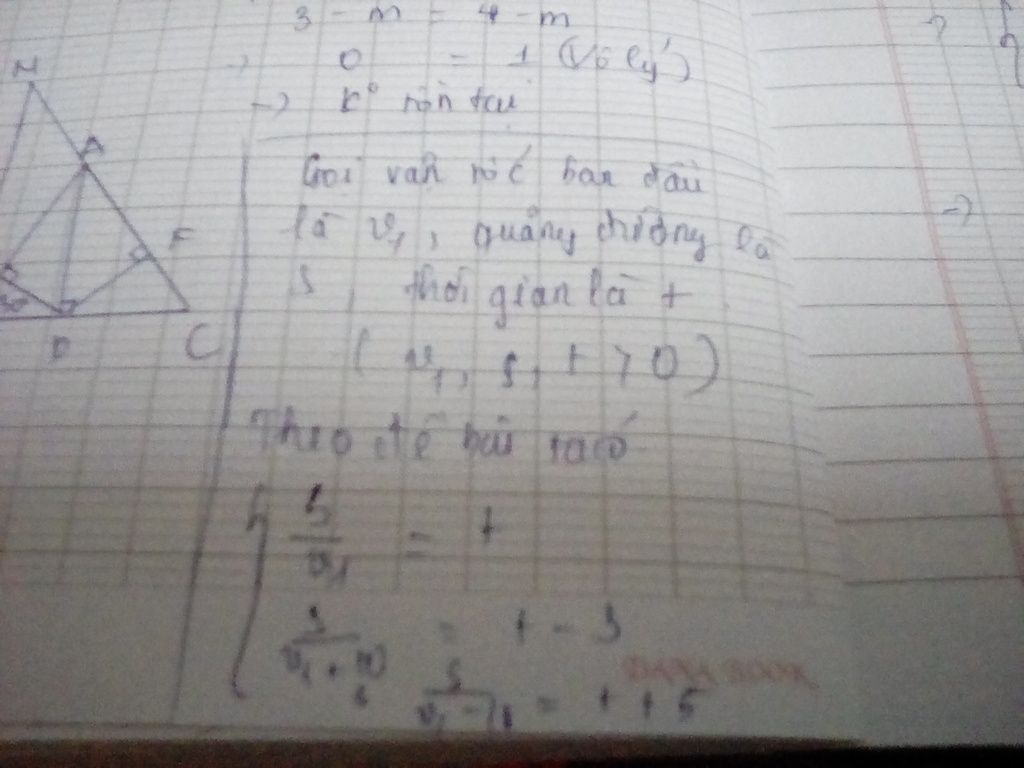 3 - m = 4 - m
→ 0 = 1 (Vô lý)
→ k° tồn tại
M
A
F
D
C
Gọi vận tốc ban đầu
là v₁, quãng đường là
S, thời gian là t
(v₁, s, t > 0)
Theo đề bài ta có
S/v₁ = t
S/(v₁ + 10) = t - 3
S/(v₁ - 10) = t + 5